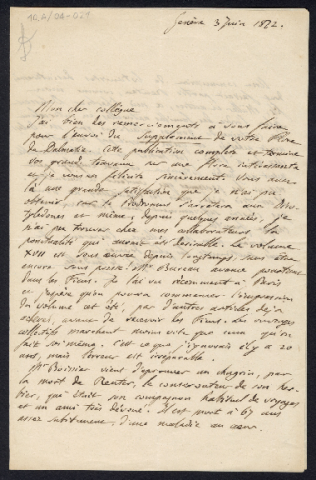 Genève 3 Juin 1872.
Mon cher collègue
J'ai bien des remerciements à vous faire
pour l'envoi du Supplement de votre Flore
de Dalmatie. Cette publication complete et termine
vos grands travaux sur une flore intéressante
et je vous félicite sincèrement. Vous avez
là une grande satisfaction que je n'ai pu
obtenir, car le Prodromus s'arrêtera aux Dicotylédones
et même, depuis quelques années, je
n'ai pu trouver chez mes collaborateurs la
ponctualité qui aurait été desirable. Le volume
XVII est sous œuvre depuis longtemps sans être
encore sous presse. Mr Bureau avance pourtant
dans les Ficus. Je l'ai vu récemment à Paris
et j'espère qu'on pourra commencer l'impression
du volume cet été, par d'autres articles déjà
avant de recevoir les Ficus. Les ouvrages
collectifs marchent moins vite que ceux qu'on
fait soi même. C'est ce que j'ignorais il y a 20
ans, mais l'erreur est irréparable.
Mr Boissier vient d'éprouver un chagrin, par
la mort de Reuter, le conservateur de son herbier,
qui était son compagnon habituel de voyages
et un ami très dévoué. Il est mort à 67 ans
assez subitement, d'une maladie au cœur.